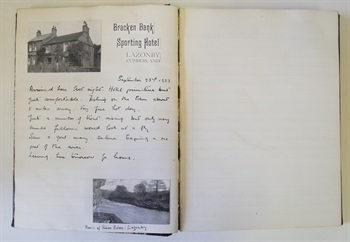 Bracken Bank
Sporting Hotel
LAZONBY
CUMBERLAND
September 23rd
Arrived here last night. Hotel primitive but
quite comfortable. Fishing on the Eden about
2 miles away. Very fine hot day.
Quite a number of fish rising but only very
small fellows would look at a fly.
Saw a good many Salmon
part of the river.
Leaving here tomorrow for home.
River Eden Lazonby